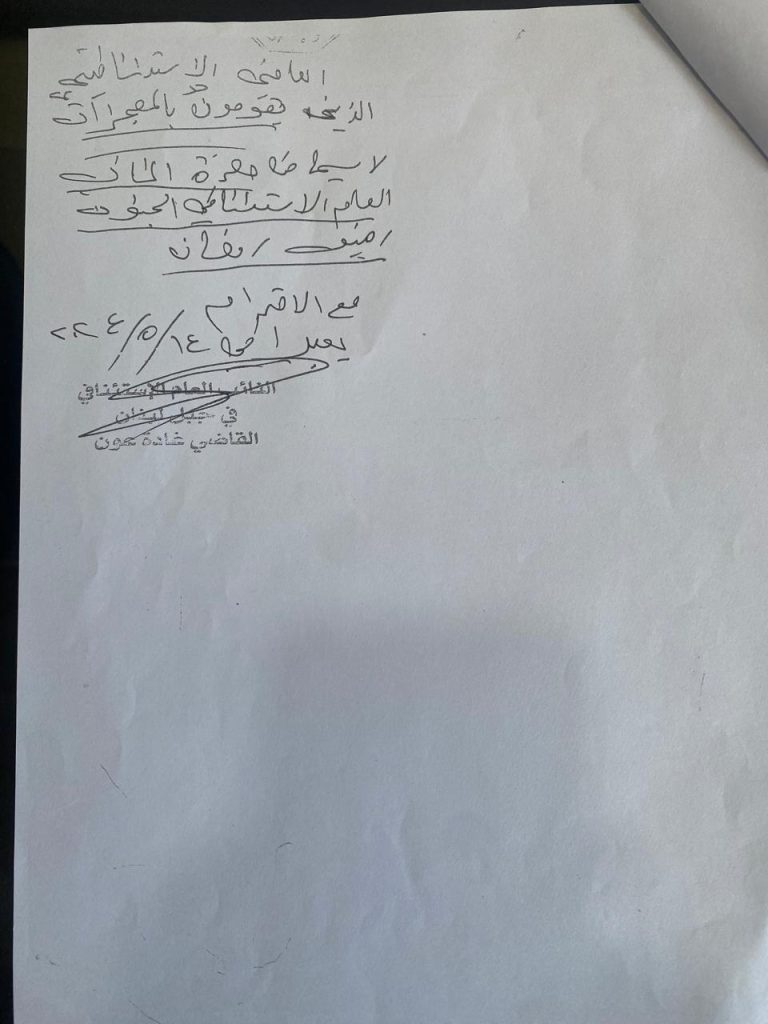 العامين الاستئنافيين
الذين يقومون بالمعجزات
لا سيما حضرة النائب
العام الاستئنافي الجنوب
رهيف رمضان
مع الاحترام
بعبدا في ١٤/٥/٢٠٢٤
النائب العام الإستئنافي
في جبل لبنان
القاضي غادة عون